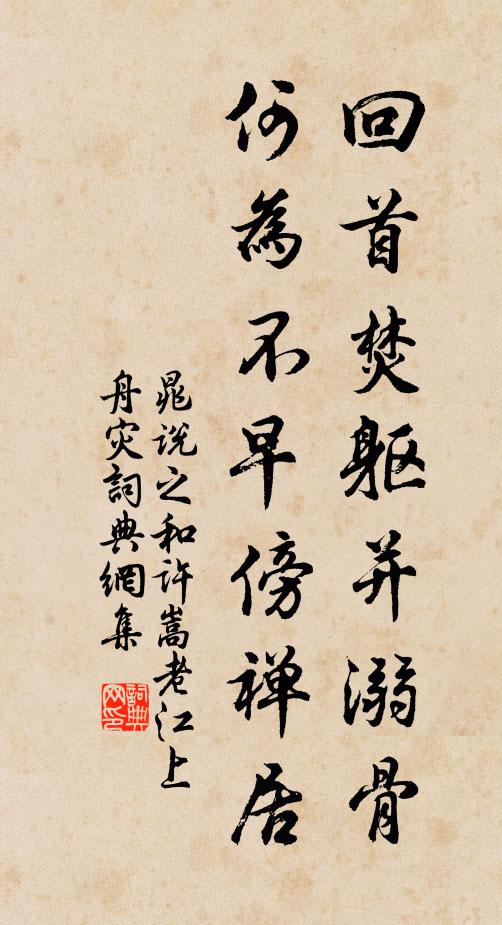 回首焚躯并溺骨
何為不早傍禅居
晁说之和许嵩老江上
舟灾詞典網集
詞典
网印